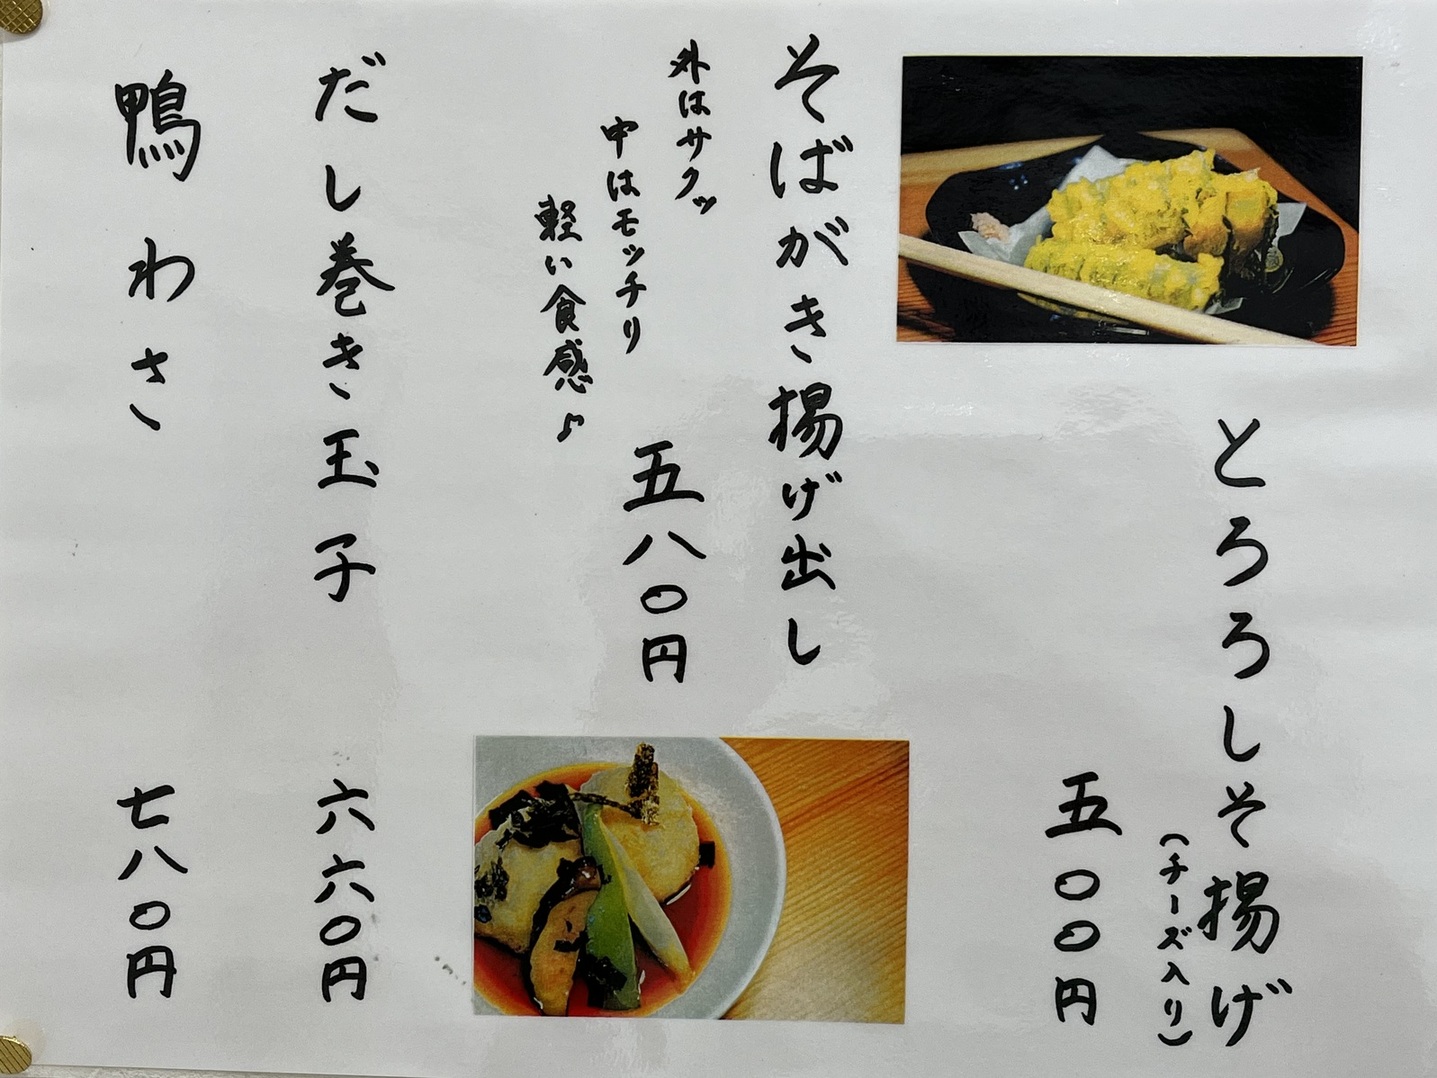 とろろしそ揚げ
(チーズ入り)
五〇〇円
そばがき揚げ出し
外はサクッ
中はモッチリ
軽い食感♪
五八〇円
だし巻き玉子
六六〇円
鴨わさ
七八〇円